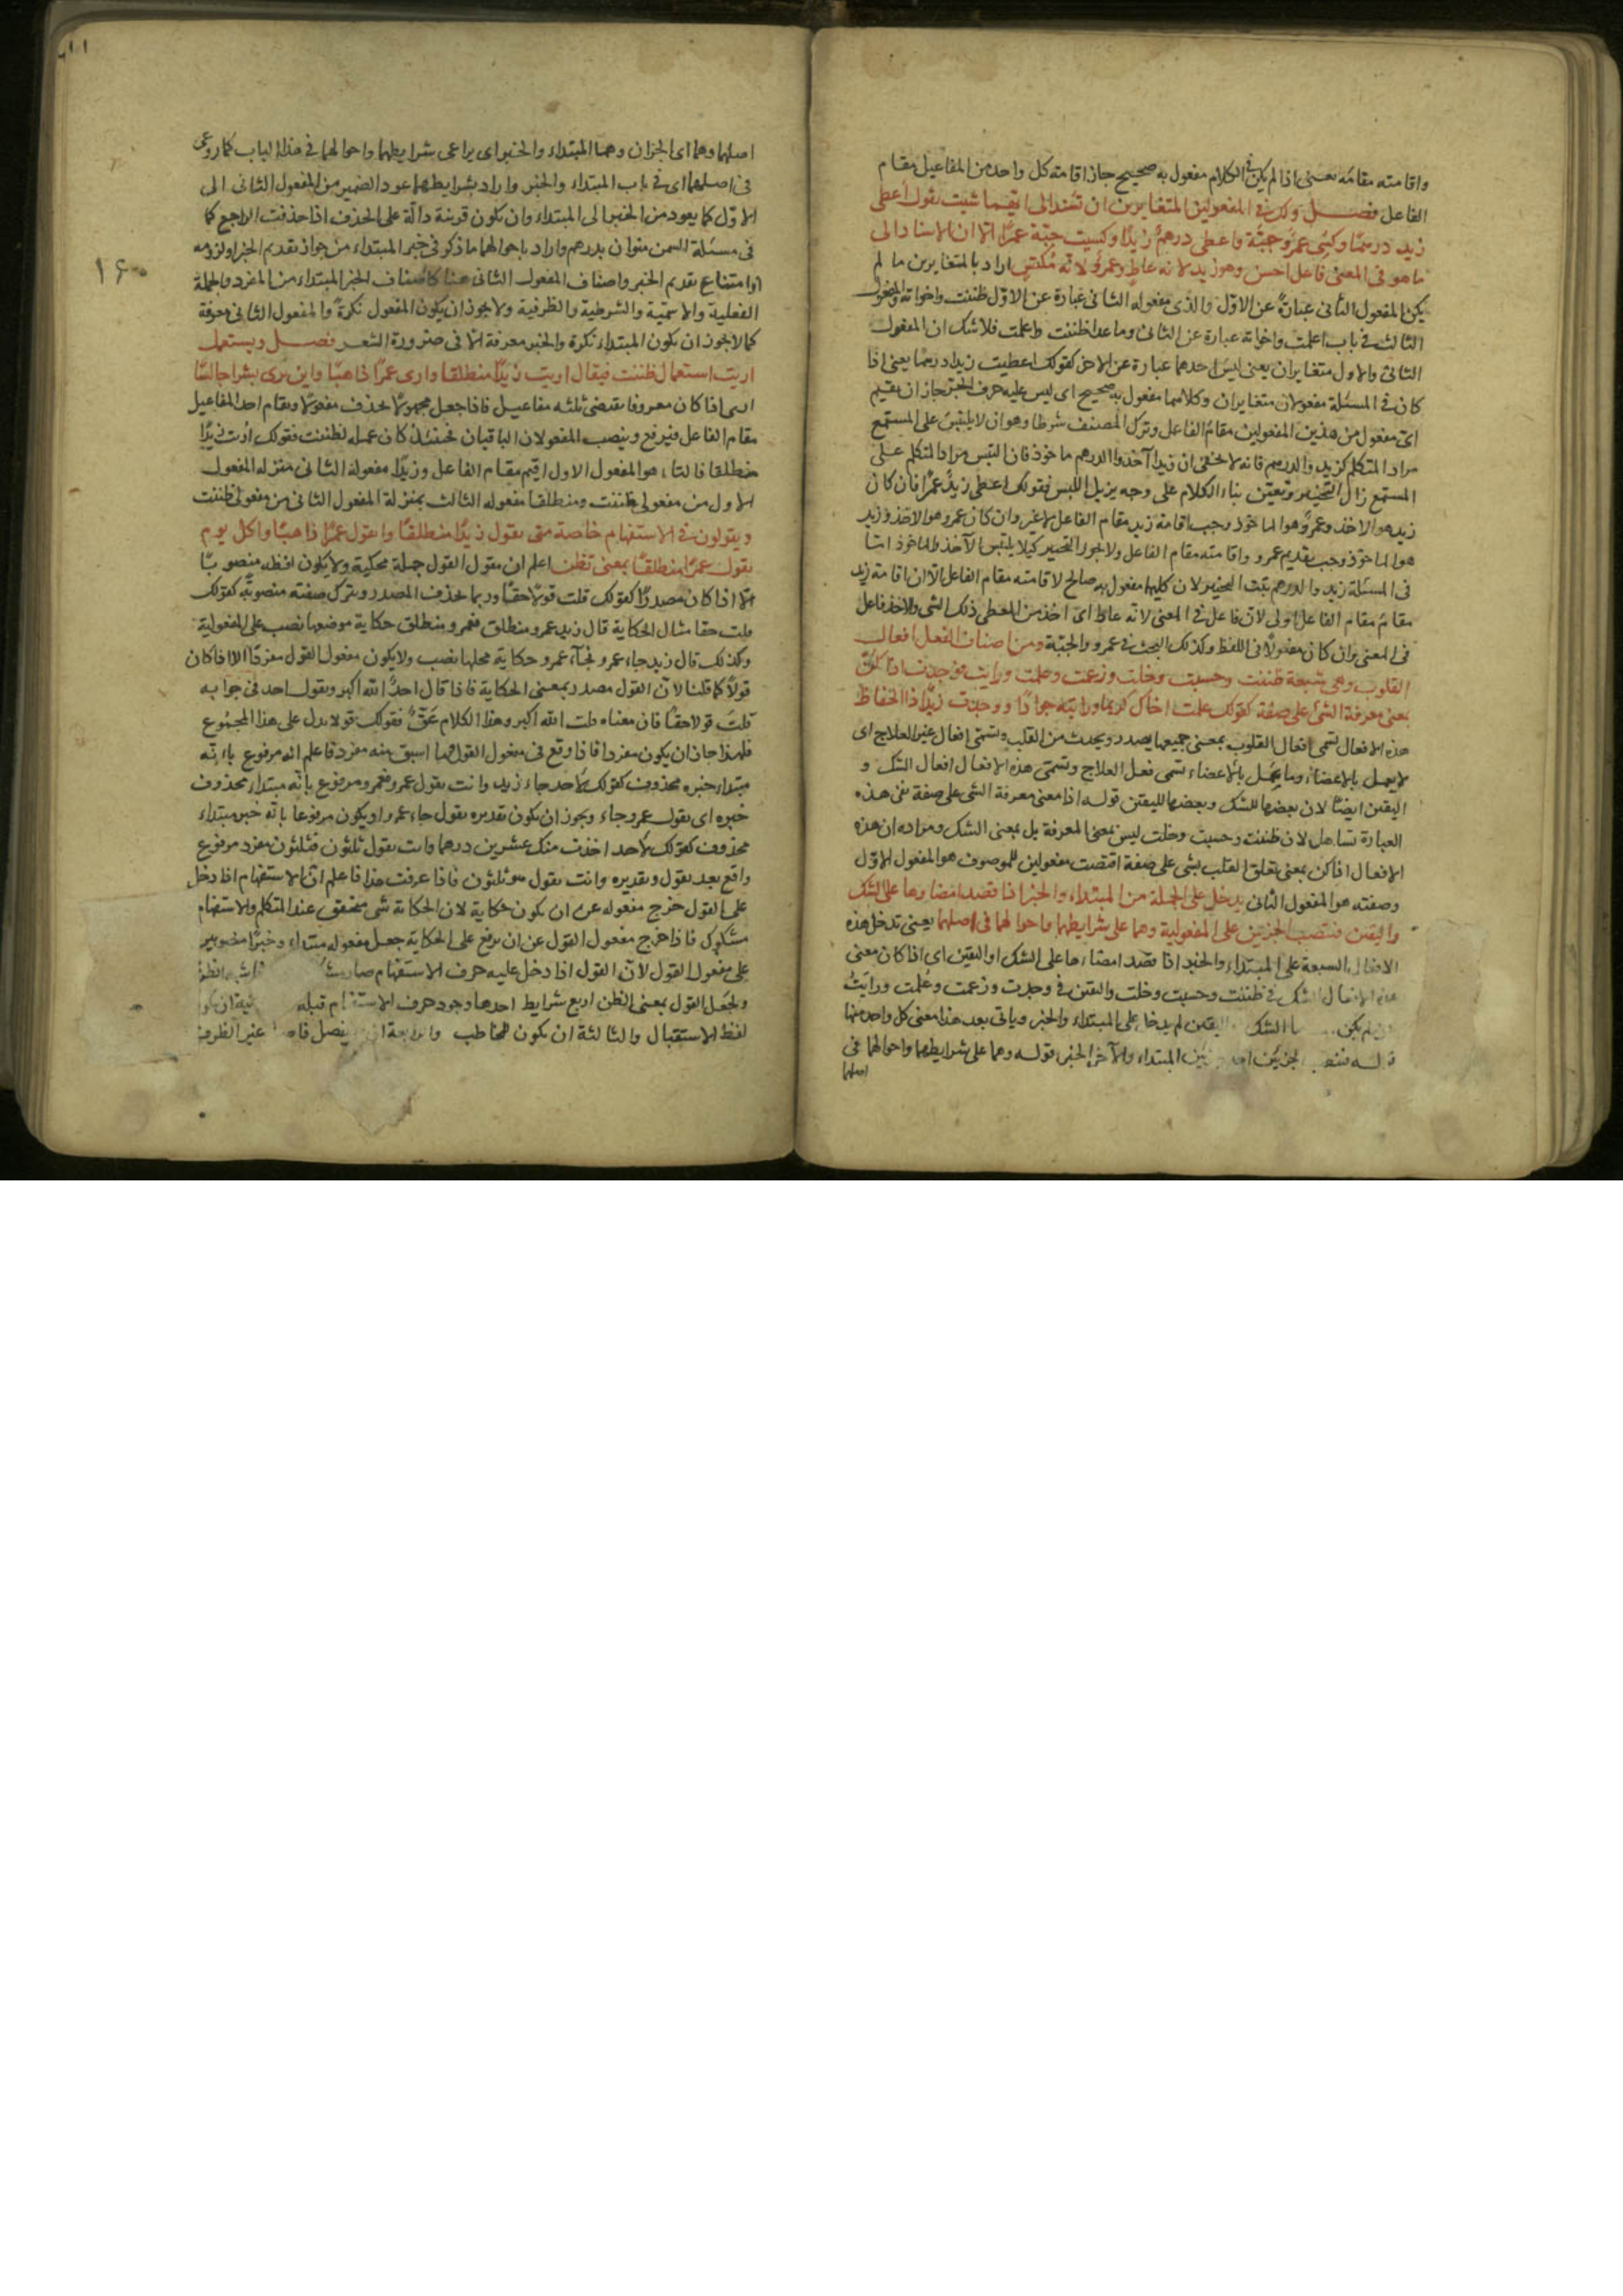 واقامته مقامه يعنى اذا لم يكن فى الكلام مفعول به صحيح جاز اقامته كل واحد من المفاعيل مقام
الفاعل فصل ولك فى المفعولين المتغايرين ان تسند الى ايهما شيت تقول اعطى
زيد درهمًا وكسى عمرو جبّة واعطى درهم زيدًا وكسيت جبّة عمرًا الا ان الاسناد الى
ما هو فى المعنى فاعل احسن وهو زيد لانه عاط وعمرو لانه مكتس اراد بالمتغايرين ما لم
يكن المفعول الثانى عبارة عن الاوّل والذى مفعوله الثانى عبارة عن الاوّل ظننت واخواته والمفعول
الثالث فى باب اعلمت واخواته عبارة عن الثانى وما عدا ظننت واعلمت فلا شك ان المفعول
الثانى والاول متغايران يعنى ليس احدهما عبارة عن الاخر كقولك اعطيت زيدا درهما يعنى اذا
كان فى المسئلة مفعولان متغايران وكلاهما مفعول به صحيح اى ليس عليه حرف الجر جاز ان يقيم
اىّ مفعول من هذين المفعولين مقام الفاعل وترك المصنف شرطا وهو ان لا يلتبس على المستمع
مراد المتكلم كزيد والدرهم فانه لا يخفى ان زيدا آخذ والدرهم ماخوذ فان التبس مراد المتكلم على
المستمع زال التخيير وتعيّن بناء الكلام على وجه يزيل اللبس فقولك اعطى زيدٌ عمرًا فان كان
زيد هو الاخذ وعمرو هو الماخوذ وجب اقامة زيد مقام الفاعل لا غير وان كان عمرو هو الاخذ وزيد
هو الماخوذ وجب تقديم عمرو واقامته مقام الفاعل ولا يجوز التخيير كيلا يلتبس الآخذ بالماخوذ امّا
فى المسئلة زيد والدرهم يثبت التخيير لان كليهما مفعول به صالح لاقامته مقام الفاعل الا ان اقامة زيد
مقام الفاعل اولى لان فاعل فى المعنى لانّه عاط اى اخذ من المعطى ذلك الشى والاخذ فاعل
فى المعنى وان كان مفعولًا فى اللفظ وكذلك البحث فى عمرو والجبّة ومن اصناف الفعل افعال
القلوب وهى سبعة ظننت وحسبت وخلت وزعمت وعلمت ورايت ووجدت اذا كنّ
بمعنى معرفة الشئ على صفة كقولك علمت اخاك كريما ورايته جوادًا ووجدت زيدًا ذا الحفاظ
هذه الافعال تسمى افعال القلوب بمعنى جميعها يصدر ويحدث من القلب وتسمى افعال غير العلاج اى
لا يعمل بالاعضاء وما يعمل بالاعضاء تسمى فعل العلاج وتسمى هذه الافعال افعال الشك و
اليقين ايضًا لان بعضها للشك وبعضها لليقين قوله اذا معنى معرفة الشى على صفة ففى هذه
العبارة تساهل لان ظننت وحسبت وخلت ليس بمعنى المعرفة بل بمعنى الشك ومراده ان هذه
الافعال اذا كن بمعنى تعلق القلب بشى على صفة اقتضت مفعولين للموصوف هو المفعول الاوّل
وصفته هو المفعول الثانى يدخل على الجملة من المبتداء والخبر اذا قصد امضاؤها على الشك
واليقين فتنصب الجزئين على المفعولية وهما على شرايطهما واحوالهما فى اصلهما يعنى تدخل هذه
الافعال السبعة على المبتداء والخبر اذا قصد امضاءها على الشك او اليقين اى اذا كان معنى
هذه الافعال الشك فى ظننت وحسبت وخلت واليقين فى وجدت وزعمت وعلمت ورايت
لم يكن الشك اليقين لم يدخل على المبتداء والخبر وياتى بعد هذا معنى كل واحد منها
قوله فتنصب الجزئين المبتداء والآخر الخبر قوله وهما على شرايطهما واحوالهما فى
اصلهما
اصلهما وهما اى الجزان وهما المبتداء والخبر اى يراعى شرايطهما واحوالهما فى هذا الباب كما روعى
فى اصلهما اى فى باب المبتداء والخبر واراد بشرايطهما عود الضمير من المفعول الثانى الى
الاوّل كما يعود من الخبر الى المبتداء وان يكون قرينة دالّة على الحذف اذا حذفت الراجع كما
فى مسئلة السمن منوان بدرهم واراد باحوالهما ما ذكر فى خبر المبتداء من جواز تقديم الخبر او لزومه
او امتناع تقديم الخبر واصناف المفعول الثانى هنا كاصناف الخبر المبتداء من المفرد والجملة
١٦٠
الفعلية والاسمية والشرطية والظرفية ولا يجوز ان يكون المفعول نكرةً والمفعول الثانى معرفة
كما لا يجوز ان يكون المبتداء نكرة والخبر معرفة الّا فى ضرورة الشعر فصل ويستعمل
اريت استعمال ظننت فيقال اريت زيدًا منطلقا وارى عمرًا ذاهبًا واين ترى بشرا جالسًا
ارى اذا كان معروفا يقتضى ثلثه مفاعيل فاذا جعل مجهولًا يحذف مفعولا ويقام احد المفاعيل
مقام الفاعل فيرفع وينصب المفعولان الباقيان فحينئذ كان عمله لظننت فقولك اريت زيدًا
منطلقا فالتاء هو المفعول الاول اقيم مقام الفاعل وزيدًا مفعوله الثانى منزله المفعول
الاول من مفعولى ظننت ومنطلقا مفعوله الثالث بمنزلة المفعول الثانى من مفعولى ظننت
ويقولون فى الاستفهام خاصة متى تقول زيدًا منطلقًا واتقول عمرًا ذاهبًا واكل يوم
تقول عمرًا منطلقًا بمعنى تظن اعلم ان مقول القول جملة محكية ولا يكون لفظه منصوبًا
الّا اذا كان مصدرًا كقولك قلت قولًا حقًا وربما يحذف المصدر ويترك صفته منصوبة كقولك
قلت حقا مثال الحكاية قال زيد عمرو منطلق فعمرو منطلق حكاية موضعها نصب على المفعولية
وكذلك قال زيد جاء عمرو فجاء عمرو حكاية محلها نصب ولا يكون مفعول القول مفردًا الا اذا كان
قولًا كما قلنا لانّ القول مصدر بمعنى الحكاية فاذا قال احدٌ الله اكبر وتقول احد فى جوابه
قلت قولا حقًا فان معناه قلت الله اكبر وهذا الكلام حقّ فقولك قولا يدل على هذا المجموع
فلهذا جاز ان يكون مفردا فاذا وقع فى مفعول القول مما اسبق منه مفرد فاعلم انه مرفوع بانّه
مبتداء خبره محذوف كقولك لاحد جاء زيد وانت تقول عمرو فعمرو مرفوع بانّه مبتداء محذوف
خبره اى تقول عمرو جاء ويجوز ان يكون تقديره تقول جاء عمرو او يكون مرفوعا بانّه خبر مبتداء
محذوف كقولك لاحد اخذت منك عشرين درهما وانت تقول ثلثون فثلثون مفرد مرفوع
واقع بعد تقول وتقديره وانت تقول هو ثلثون فاذا عرفت هذا فاعلم انّ الاستفهام اذا دخل
على القول خرج مفعوله عن ان يكون حكاية لان الحكاية شى محقق عند المتكلم والاستفهام
مشكوك فاذا خرج مفعول القول عن ان يرفع على الحكاية جعل مفعوله مبتداء وخبرًا منصوبين
على مفعول القول لانّ القول اذا دخل عليه حرف الاستفهام صار
ولجعل القول بمعنى الظن اربع شرايط احدها وجود حرف الاستفهام قبله
لفظ الاستقبال والثالثة ان يكون للمخاطب والرابعة ان يفصل غير الظروف